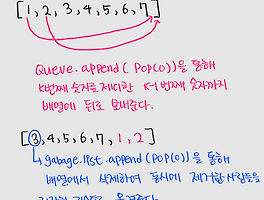 [1,2,3,4,5,6,7]
Queue.append(pop(0))을 통해
K번째 숫자를 제외한 K-1번째 숫자까지
배열에 뒤로 보내준다.
[3,4,5,6,7,1,2]
gabage.list.append(pop(0))을 통해
배열에서 삭제하며 동시에 제거한 사람들을